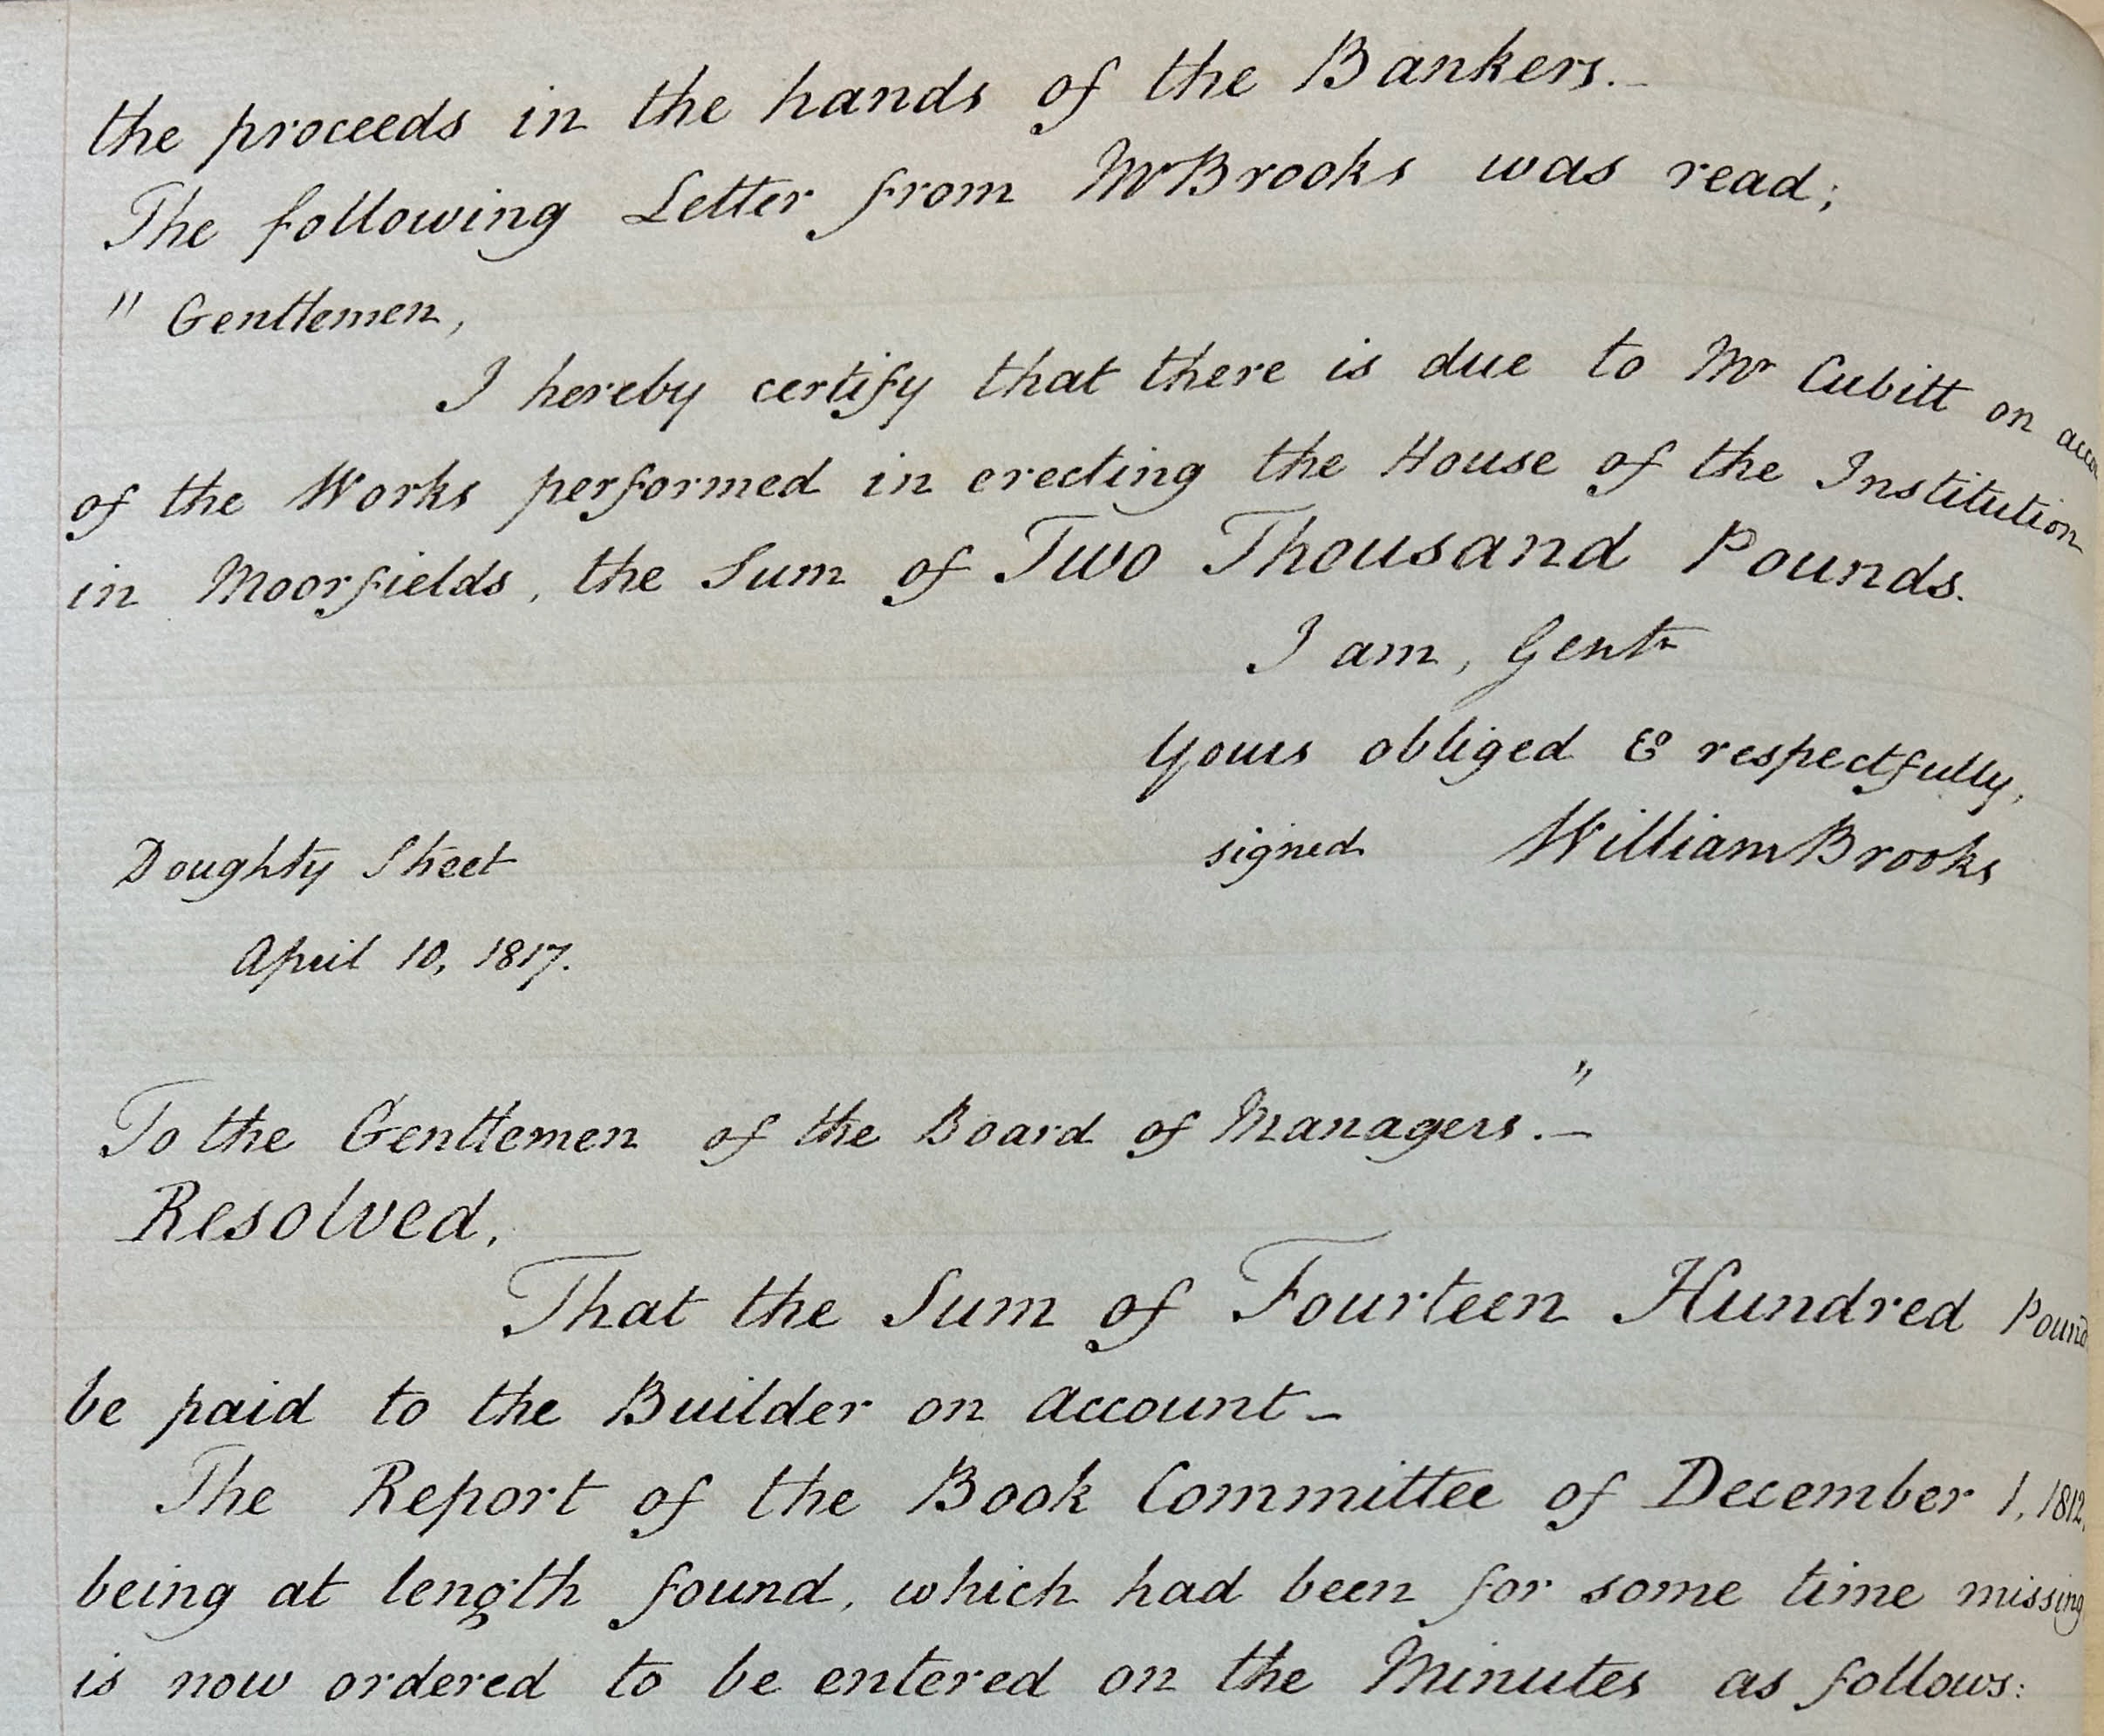 the proceeds in the hands of the Bankers.–
The following Letter from Mr Brooks was read;
" Gentlemen,
I hereby certify that there is due to Mr Cubitt on acco
of the Works performed in erecting the House of the Institution
in Moorfields, the Sum of Two Thousand Pounds.
I am, Gentn
Yours obliged & respectfully,
signed William Brooks
Doughty Street
April 10, 1817.
To the Gentlemen of the Board of Managers.–"
Resolved,
That the Sum of Fourteen Hundred Pound
be paid to the Builder on account –
The Report of the Book Committee of December 1, 1812,
being at length found, which had been for some time missing
is now ordered to be entered on the Minutes as follows: